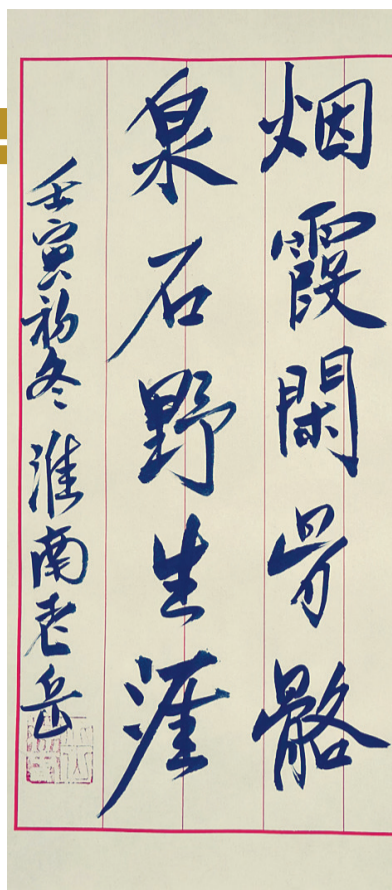 烟霞閑骨骼
泉石野生涯
壬寅初冬 淮南老岳